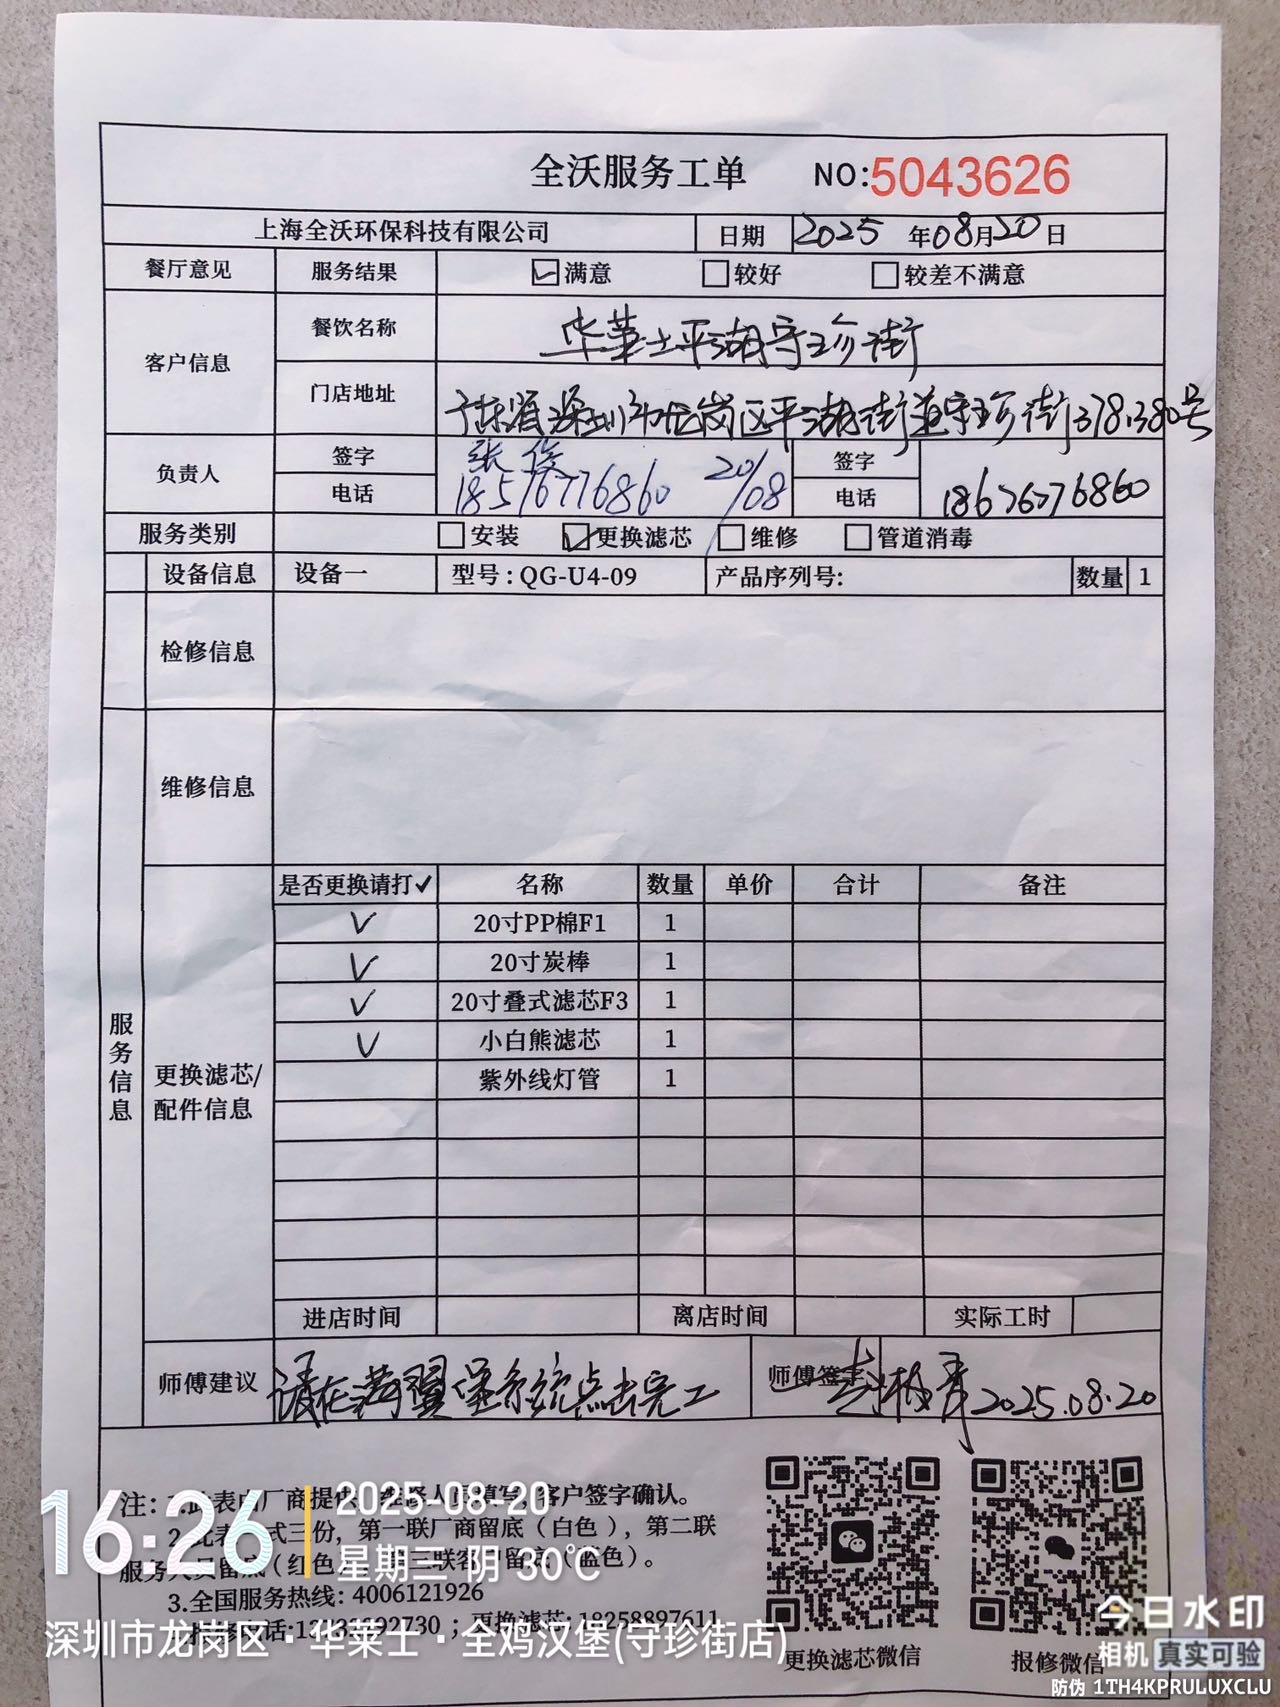 全沃服务工单 NO:5043626
上海全沃环保科技有限公司 日期 2025 年08月20日
餐厅意见 服务结果 ☑满意 □较好 □较差不满意
客户信息 餐饮名称 华莱士平湖守珍街
门店地址 广东省深圳市龙岗区平湖街道守珍街378.380号
负责人 签字 张俊 20/08 签字
电话 18576776860 电话 18676776860
服务类别 □安装 ☑更换滤芯 □维修 □管道消毒
设备信息 设备一 型号:QG-U4-09 产品序列号: 数量 1
检修信息
维修信息
服务信息
更换滤芯/配件信息
是否更换请打✓ 名称 数量 单价 合计 备注
✓ 20寸PP棉F1 1
✓ 20寸炭棒 1
✓ 20寸叠式滤芯F3 1
✓ 小白熊滤芯 1
紫外线灯管 1
进店时间 离店时间 实际工时
师傅建议 请在满翼堡系统点击完工 师傅签字 2025.08.20
注: 1.此表由厂商提供 填写,客户签字确认。
2.此表 式三份,第一联厂商留底(白色),第二联
服务人员留底(红色) 第三联客户留底(蓝色)。
3.全国服务热线: 4006121926
更换滤芯: 18258897611
更换滤芯微信 报修微信
16:26 2025-08-20
星期三 阴 30℃
深圳市龙岗区·华莱士·全鸡汉堡(守珍街店)
今日水印
相机 真实可验
防伪 1TH4KPRULUXCLU